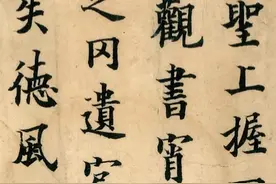 聖上握
觀書宵
之罔遺官
失德風